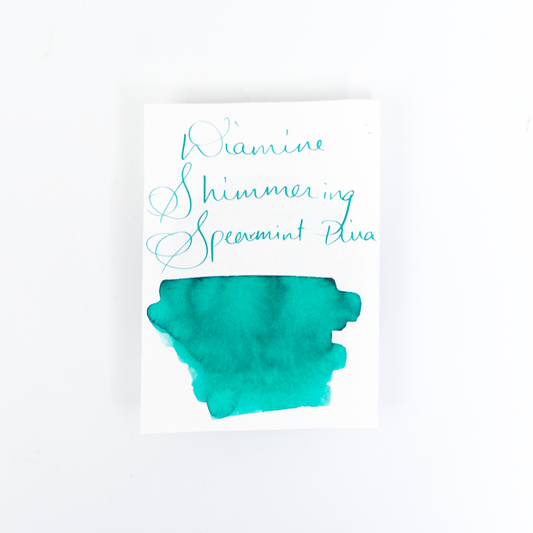 Diamine
Shimmering
Spearmint Diva